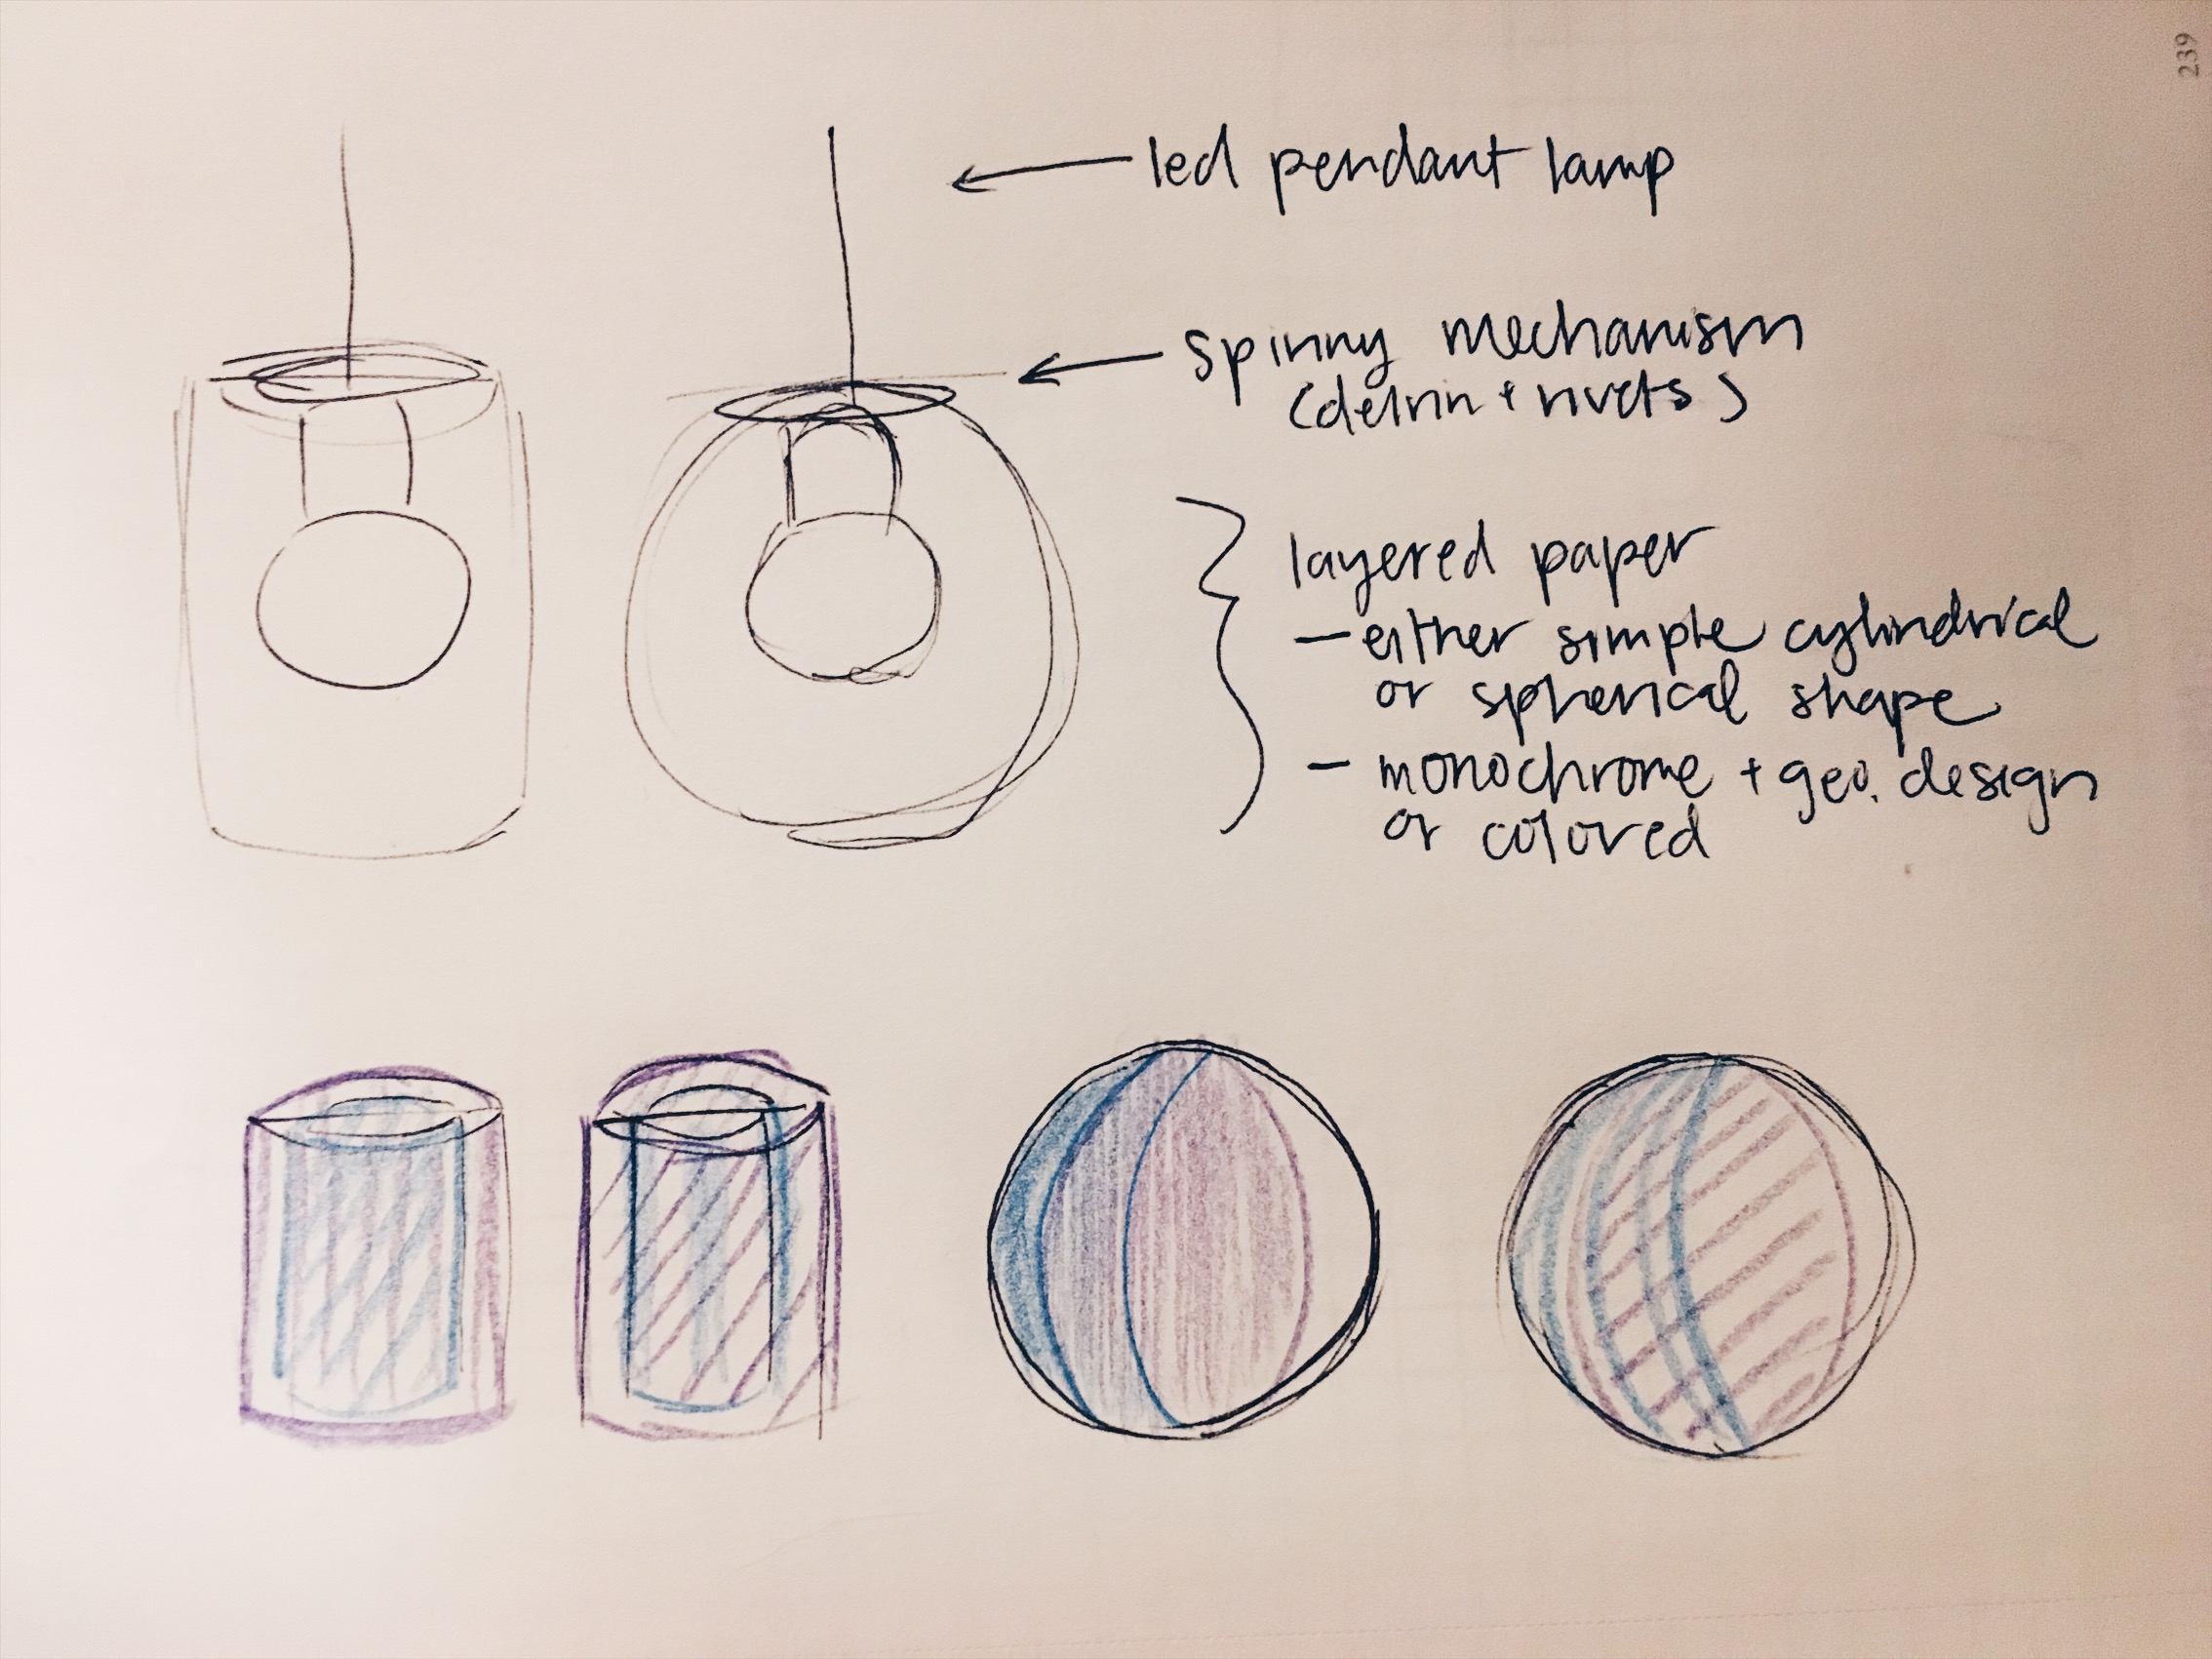 239
led pendant lamp
spinny mechanism
(delrin + rivets)
layered paper
- either simple cylindrical
or spherical shape
- monochrome + geo. design
or colored